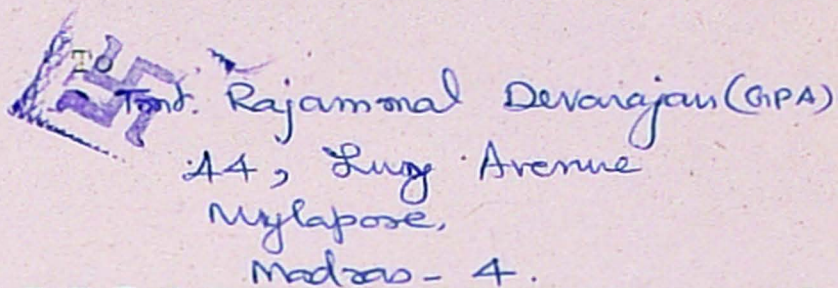 To
Tmt. Rajammal Devarajan (GPA)
44, Luz Avenue
Mylapore,
Madras - 4.